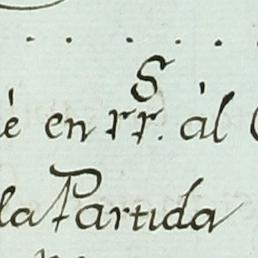 è en rr.^s àl
la Partida